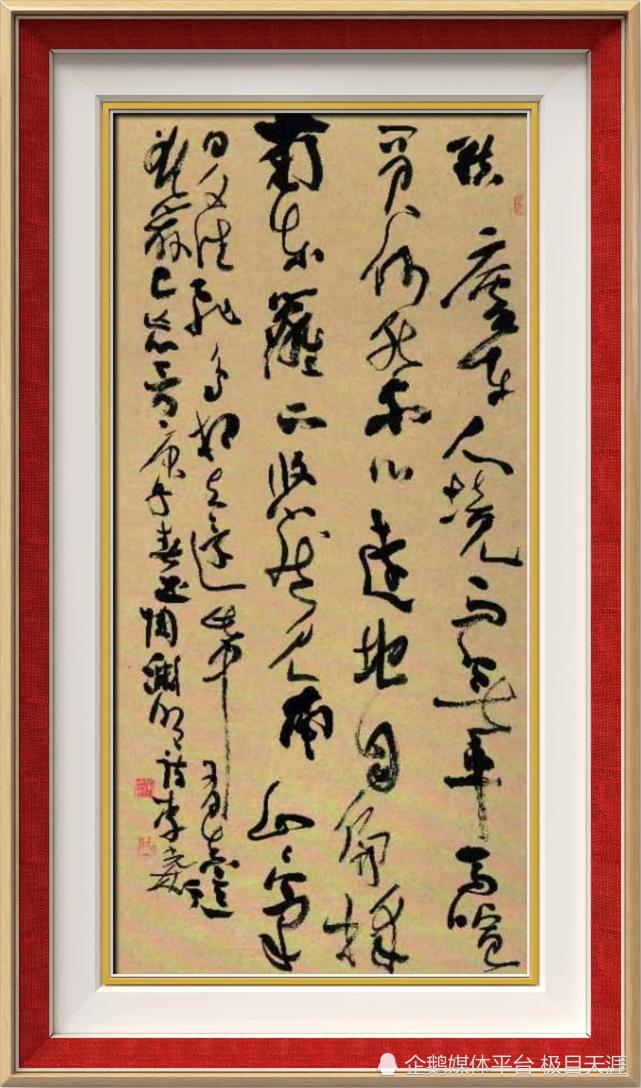 結廬在人境而無車馬喧
問君何能爾心遠地自偏採
菊東籬下悠然見南山〻氣
日夕佳飛鳥相與還此中有真意
欲辨已忘言庚春書陶淵明詩李
企鹅媒体平台 极目天涯